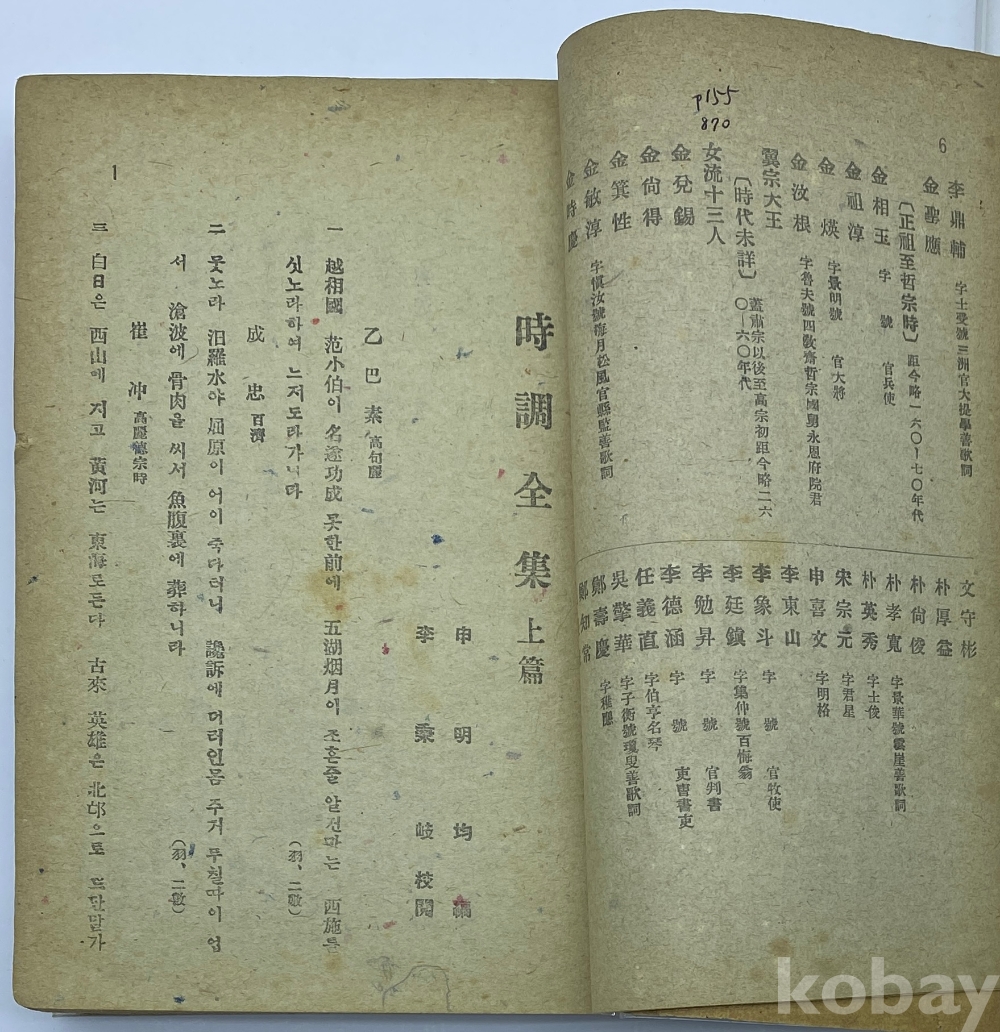 p155
870
6
李鼎輔 字士受號三洲官大提學善歌詞
金聖應
〔正祖至哲宗時〕 距今略一六〇—七〇年代
金相玉 字 號 官兵使
金祖淳
金煐 字景明號 官大將
金汶根 字魯夫號四敎齋哲宗國舅永恩府院君
翼宗大王
〔時代未詳〕 蓋肅宗以後至高宗初距今略二六〇—六〇年代
女流十三人
金兌錫
金尙得
金箕性
金敏淳 字愼汝號海月松風官縣監善歌詞
金時慶
文守彬
朴厚益
朴尙俊
朴孝寬 字景華號雲崖善歌詞
朴英秀 字士俊
宋宗元 字君星
申喜文 字明格
李東山
李象斗 字 號 官牧使
李廷鎭 字集仲號百悔翁
李勉昇 字 號 官判書
李德涵 字 號 吏曹書吏
任義直 字伯亨名琴
吳擎華 字子衡號瓊叟善歌詞
鄭壽慶 字稚應
鄭知常
時調全集 上篇
申明均 編
李秉岐 校閱
乙巴素 高句麗
一 越相國 范小伯이 名遂功成 못한前에 五湖烟月이 조흔줄 알건마는 西施를
싯노라하여 느저도라가니라
(羽、二數)
成忠 百濟
二 뭇노라 汨羅水야 屈原이 어이 죽다터니 讒訴에 더러인몸 주거 무칠따이 업
서 滄波에 骨肉을 씨서 魚腹裏에 葬하니라
(羽、二數)
崔冲 高麗德宗時
三 白日은 西山에 지고 黃河는 東海로든다 古來 英雄은 北邙으로 드단말가
1
kobay